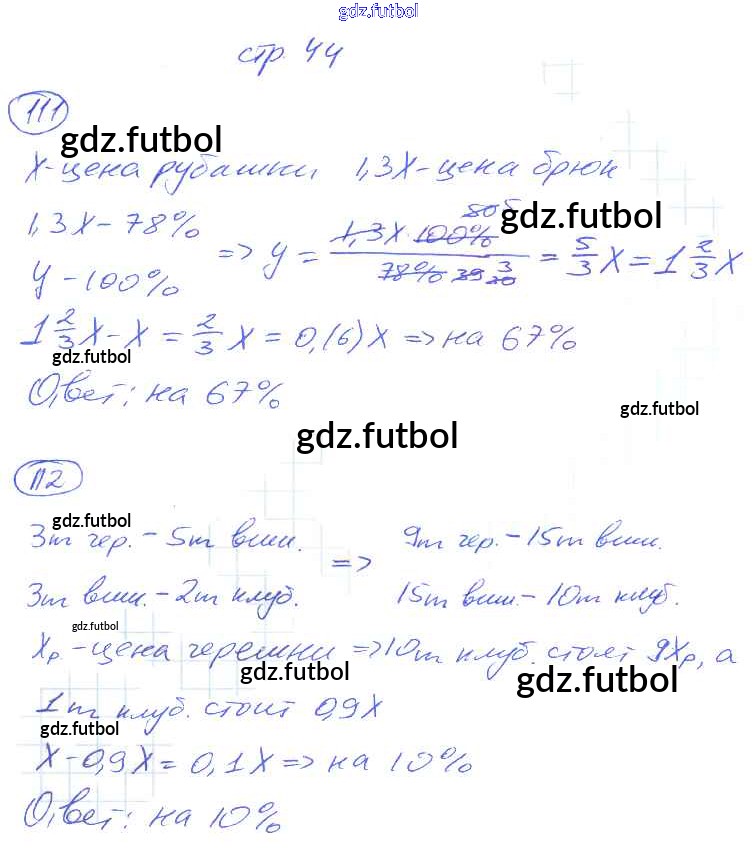 gdz.futbol
стр. 44
111
gdz.futbol
X-цена рубашки, 1,3X-цена брюк
1,3X - 78%
gdz.futbol
y - 100%
=> y = 1,3X·100% / 78% = 5/3 X = 1 2/3 X
1 2/3 X - X = 2/3 X = 0,(6)X => на 67%
gdz.futbol
Ответ: на 67%
gdz.futbol
gdz.futbol
112
gdz.futbol
3т чер. - 5т виш. => 9т чер. - 15т виш.
3т виш. - 2т клуб. 15т виш. - 10т клуб.
gdz.futbol
Xр. - цена черешни => 10т клуб. стоят 9Xр, а
gdz.futbol
1т клуб. стоит 0,9X
gdz.futbol
X - 0,9X = 0,1X => на 10%
Ответ: на 10%